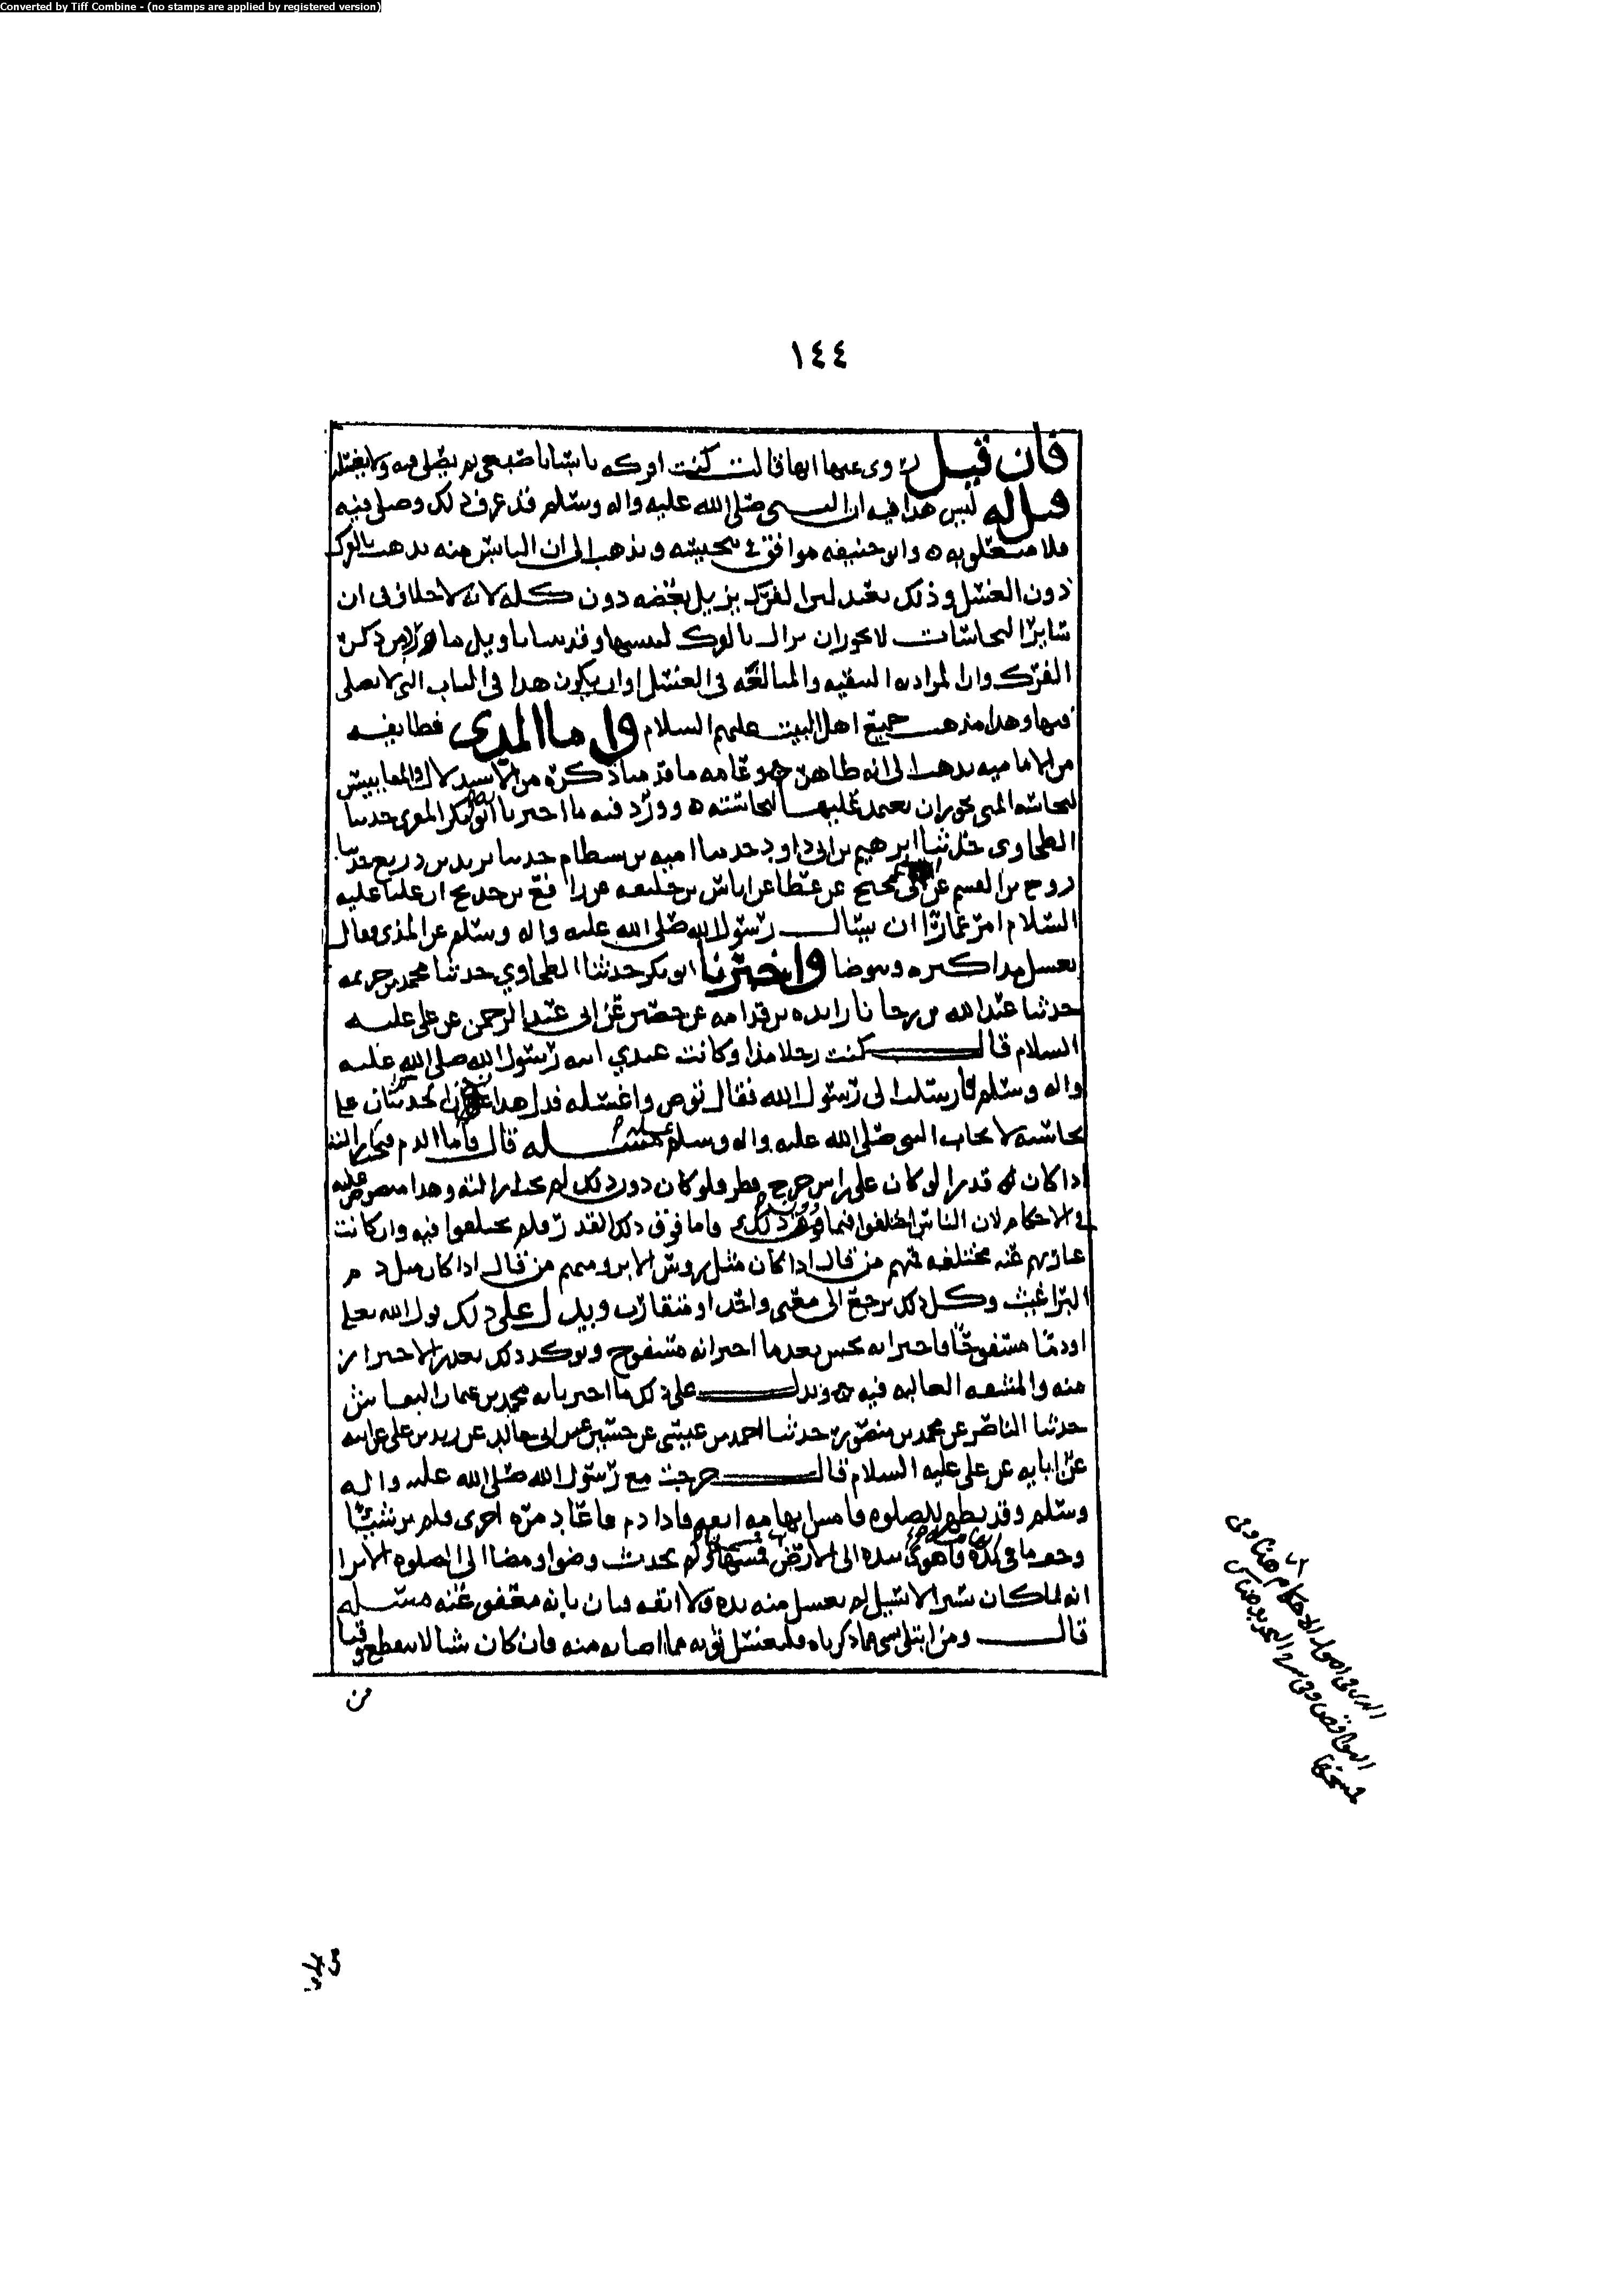 Converted by Tiff Combine - (no stamps are applied by registered version)
١٤٤
فان قيل روى عنها انها قالت كنت افركه يابسا باصبعي ثم يصلي فيه ولا يغسله
قيل له ليس هذا فيه ان النبي صلى الله عليه واله وسلم قد عرف ذلك وصلى فيه
فلا متعلق به ه وابو حنيفه موافق في تنجيسه ويذهب الى ان اليابس منه يذهب بالفرك
دون الغسل وذلك بعيد لان الفرك يزيل بعضه دون كله لانه لا خلاف في ان
سائر النجاسات لا يجوز ان يزال بالفرك وقد بينا تاويل ما ورد من ذكر
الفرك وان المراد به التنقيه والمبالغه في الغسل او ان يكون هذا في الثياب التي لا يصلى
فيها وهذا مذهب جميع اهل البيت عليهم السلام واما المذي فطايفه
من الاماميه يذهب الى انه طاهر وعامه ما قدمنا ذكره من الاستدلال والمقاييس
لنجاسه المني يجوز ان يعتمد عليها لنجاسته ه وورد فيه ما اخبرنا ابو بكر المقري حدثنا
الطحاوي حدثنا ابرهيم بن ابي داود حدثنا اميه بن بسطام حدثنا يزيد بن زريع حدثنا
روح بن القسم عن ابن ابي نجيح عن عطا عن اياس بن خليفه عن رافع بن خديج ان عليا عليه
السلام امر عمارا ان يسال رسول الله صلى الله عليه واله وسلم عن المذي فقال
يغسل مذاكيره ويتوضا واخبرنا ابو بكر حدثنا الطحاوي حدثنا محمد بن خزيمه
حدثنا عبد الله بن رجا نا زايده بن قدامه عن حصين عن ابي عبد الرحمن عن علي عليه
السلام قال كنت رجلا مذا وكانت عندي ابنه رسول الله صلى الله عليه
واله وسلم فارسلت الى رسول الله فقال توض واغسله فدل هذان الحديثان على
نجاسته لايجاب النبي صلى الله عليه واله وسلم غسله مسئله قال واما الدم
اذا كان قدرا لو كان على راس جرح قطر فلو كان دون ذلك لم وهذا منصوص عليه
في الاحكام لان الناس اختلفوا فيما دون ذلك فاما فوق ذلك القدر فلم يختلفوا فيه وان كانت
عبارتهم عنه مختلفه فمنهم من قال اذا كان مثل روس الابر ومنهم من قال اذا كان مثل دم
البراغيث وكل ذلك يرجع الى معنى واحد او متقارب ويدل على ذلك قول الله تعلى
او دما مسفوحا فاخبر انه نجس بعدما اخبر انه مسفوح ويوكد ذلك تعذر الاحتراز
منه والمشقه الغالبه فيه ه ويدل على ذلك ما اخبرنا به محمد بن عثمان النقاش
حدثنا الناصر عن محمد بن منصور حدثنا احمد بن عيسى عن حسين عن ابي خالد عن زيد بن علي عن ابيه
عن ابايه عن علي عليه السلام قال خرجت مع رسول الله صلى الله عليه واله
وسلم وقد تطهر للصلوه فامس ابهامه انفه فاذا دم فاعاد مره اخرى فلم ير شيئا
وجف ما في يده فاهوى بيده الى الارض فمسحها ولم يحدث وضوا ومضا الى الصلوه الا ترا
انه لما كان يسيرا لا يسيل لم يغسل منه يده ولا انفه فبان بانه معفو عنه مسئله
قال ومن ابتلي بشي مما ذكرناه فليغسل ثوبه مما اصابه منه فان كان سيالا لا ينقطع وقتا
من